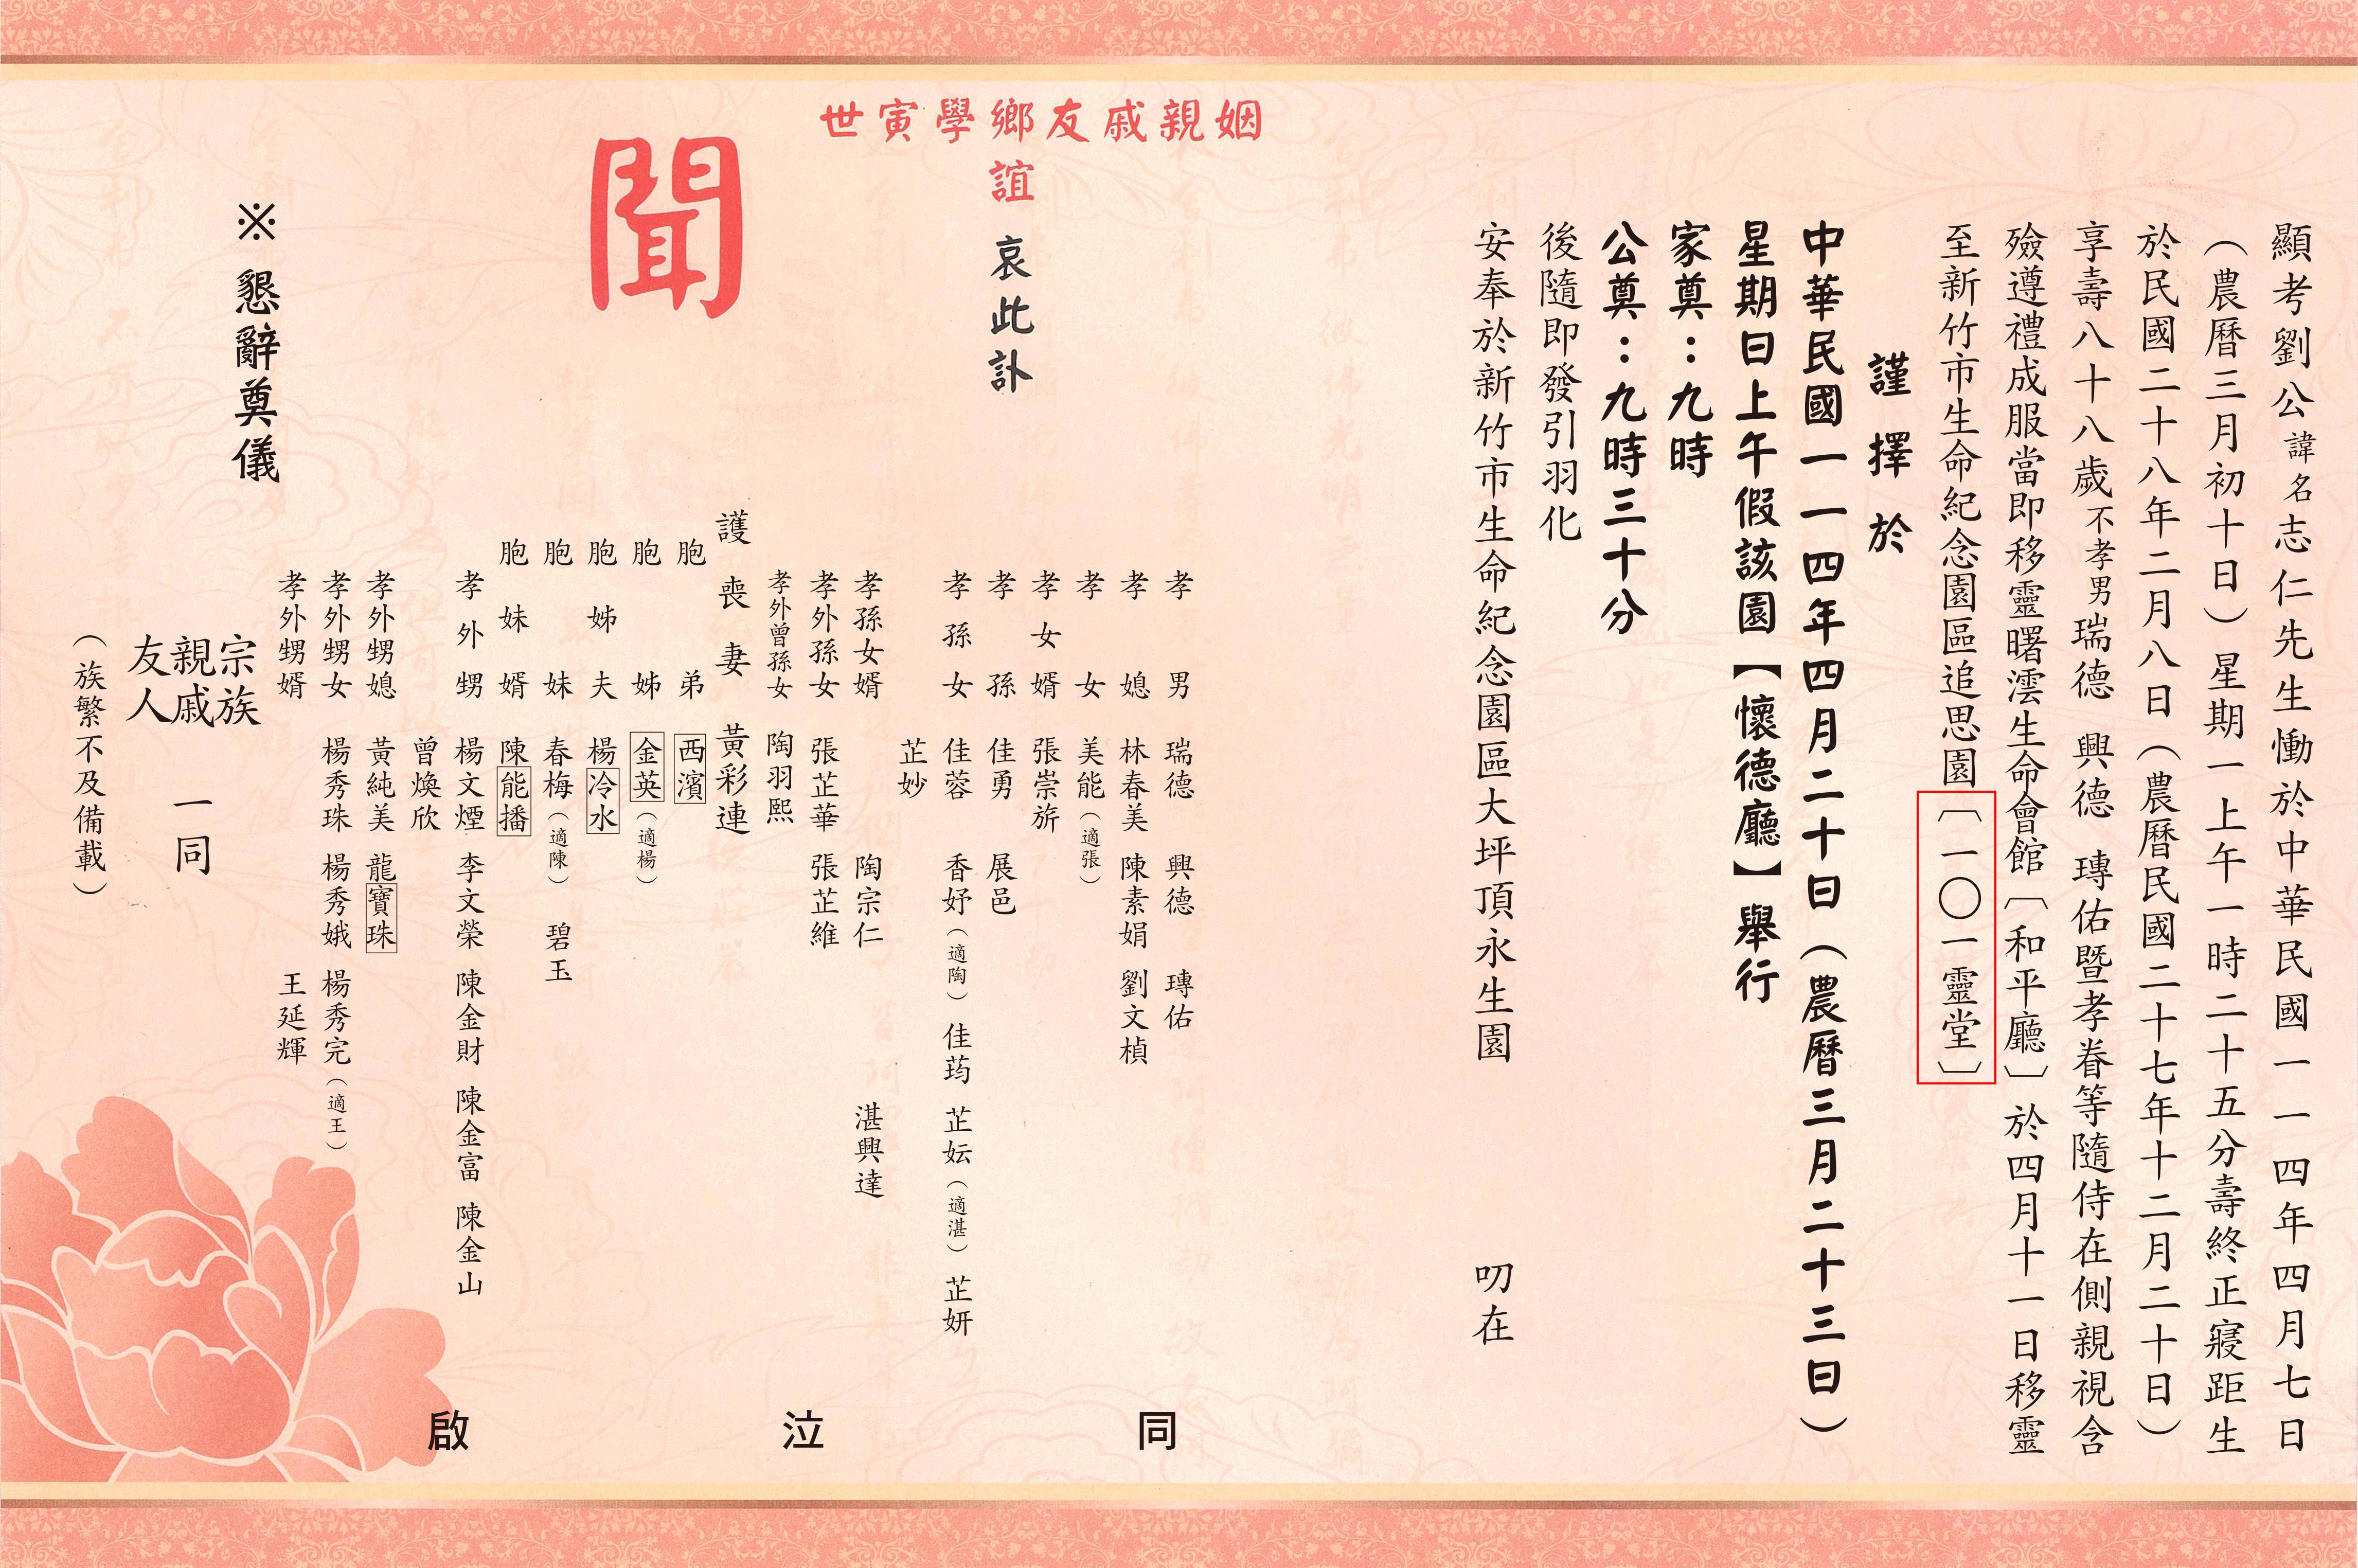 顯考劉公諱名志仁先生慟於中華民國一一四年四月七日
（農曆三月初十日）星期一上午一時二十五分壽終正寢距生
於民國二十八年二月八日（農曆民國二十七年十二月二十日）
享壽八十八歲不孝男瑞德 興德 瑼佑暨孝眷等隨侍在側親視含
殮遵禮成服當即移靈曙澐生命會館〔和平廳〕於四月十一日移靈
至新竹市生命紀念園區追思園〔一〇一靈堂〕
謹擇於
中華民國一一四年四月二十日（農曆三月二十三日）
星期日上午假該園【懷德廳】舉行
家奠：九時
公奠：九時三十分
後隨即發引羽化
安奉於新竹市生命紀念園區大坪頂永生園 叨在
姻親戚友鄉學寅世
誼 哀此訃
聞
孝男 瑞德 興德 瑼佑
孝媳 林春美 陳素娟 劉文楨
孝女 美能（適張）
孝女婿 張崇旂
孝孫 佳勇 展邑
孝孫女 佳蓉 香妤（適陶） 佳筠 芷妘（適湛） 芷妍
芷妙
孝孫女婿 陶宗仁 湛興達
孝外孫女 張芷華 張芷維
孝外曾孫女 陶羽熙
護喪妻 黃彩連
胞弟 西濱
胞姊 金英（適楊）
胞姊夫 楊冷水
胞妹 春梅（適陳） 碧玉
胞妹婿 陳能播
孝外甥 楊文煙 李文榮 陳金財 陳金富 陳金山
曾煥欣
孝外甥媳 黃純美 龍寶珠
孝外甥女 楊秀珠 楊秀娥 楊秀完（適王）
孝外甥婿 王延輝
同 泣 啟
宗族
親戚 一同
友人
（族繁不及備載）
※懇辭奠儀